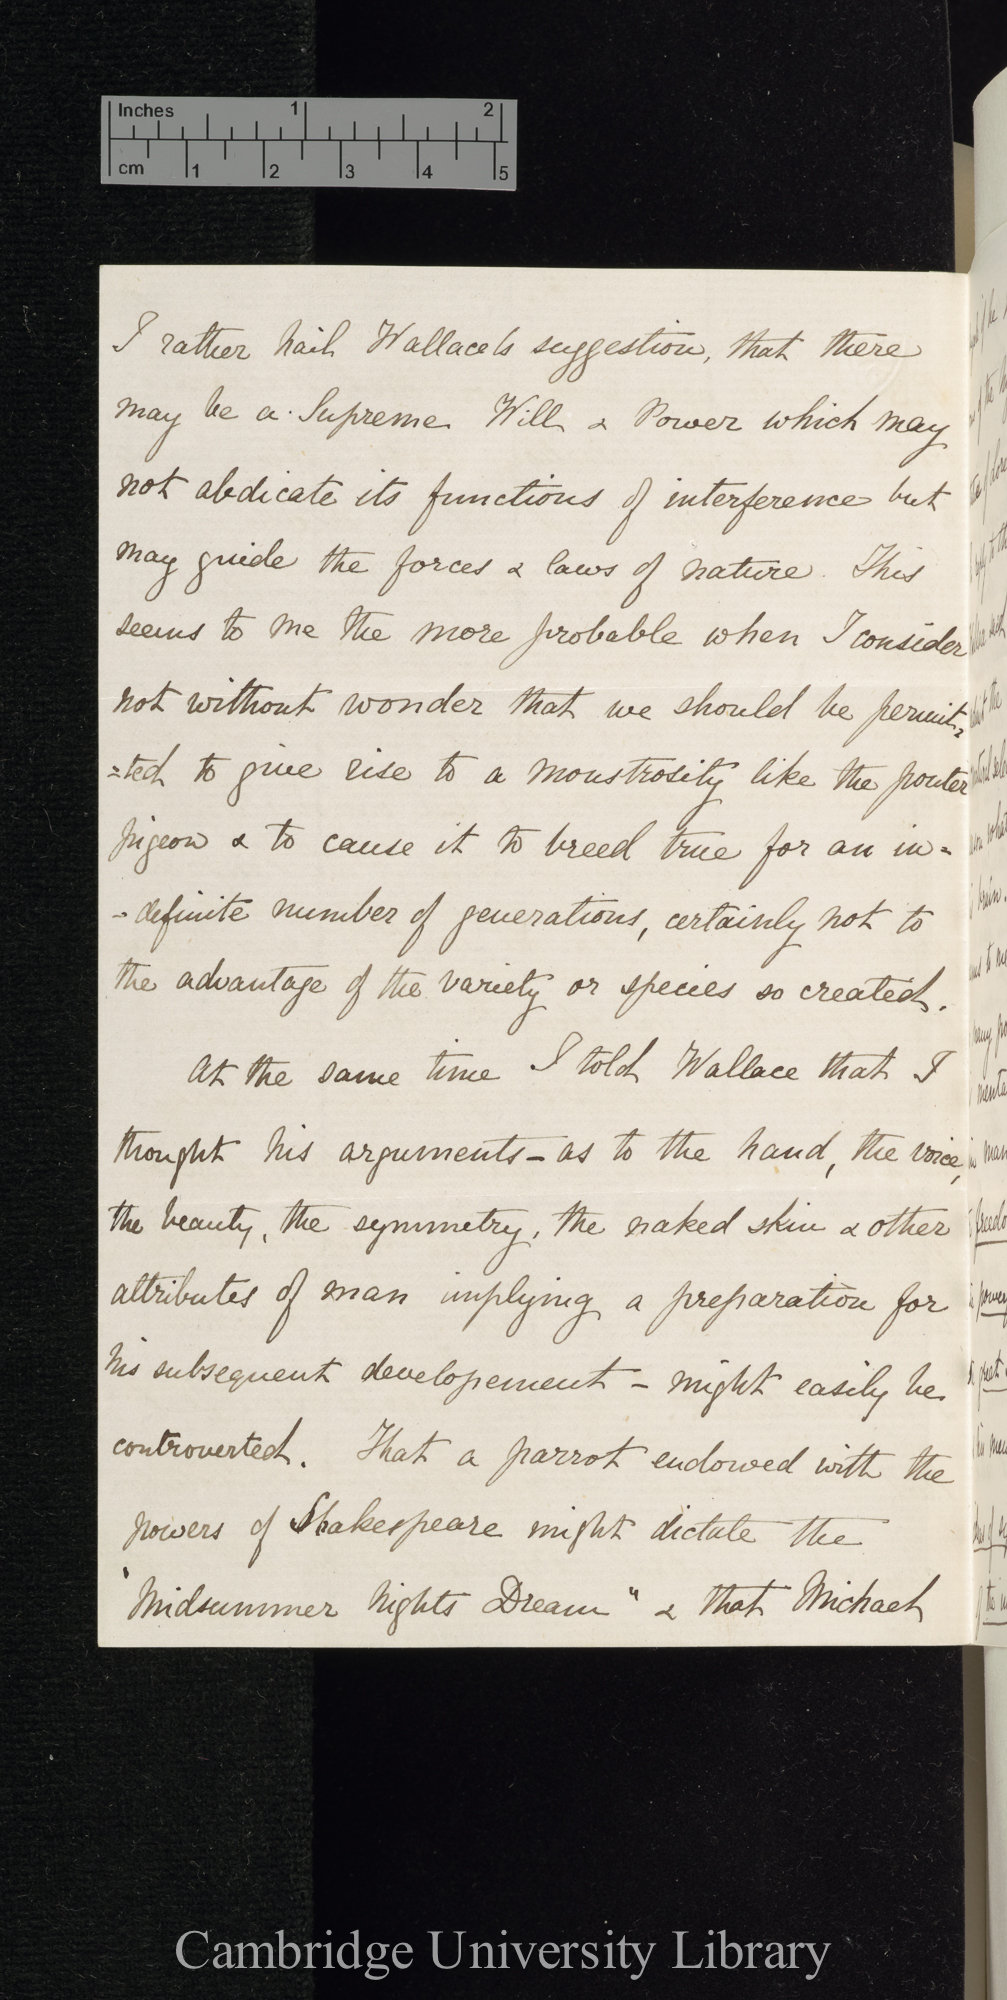 Inches 1 2
cm 1 2 3 4 5
I rather hail Wallace's suggestion, that there
may be a Supreme Will & Power which may
not abdicate its functions of interference but
may guide the forces & laws of nature. This
seems to me the more probable when I consider
not without wonder that we should be permit=
=ted to give rise to a monstrosity like the pouter
pigeon & to cause it to breed true for an in=
-definite number of generations, certainly not to
the advantage of the variety or species so created.
At the same time I told Wallace that I
thought his arguments – as to the hand, the voice,
the beauty, the symmetry, the naked skin & other
attributes of man implying a preparation for
his subsequent developement – might easily be
controverted. That a parrot endowed with the
powers of Shakespeare might dictate the
"Midsummer Nights Dream" & that Michael
Cambridge University Library